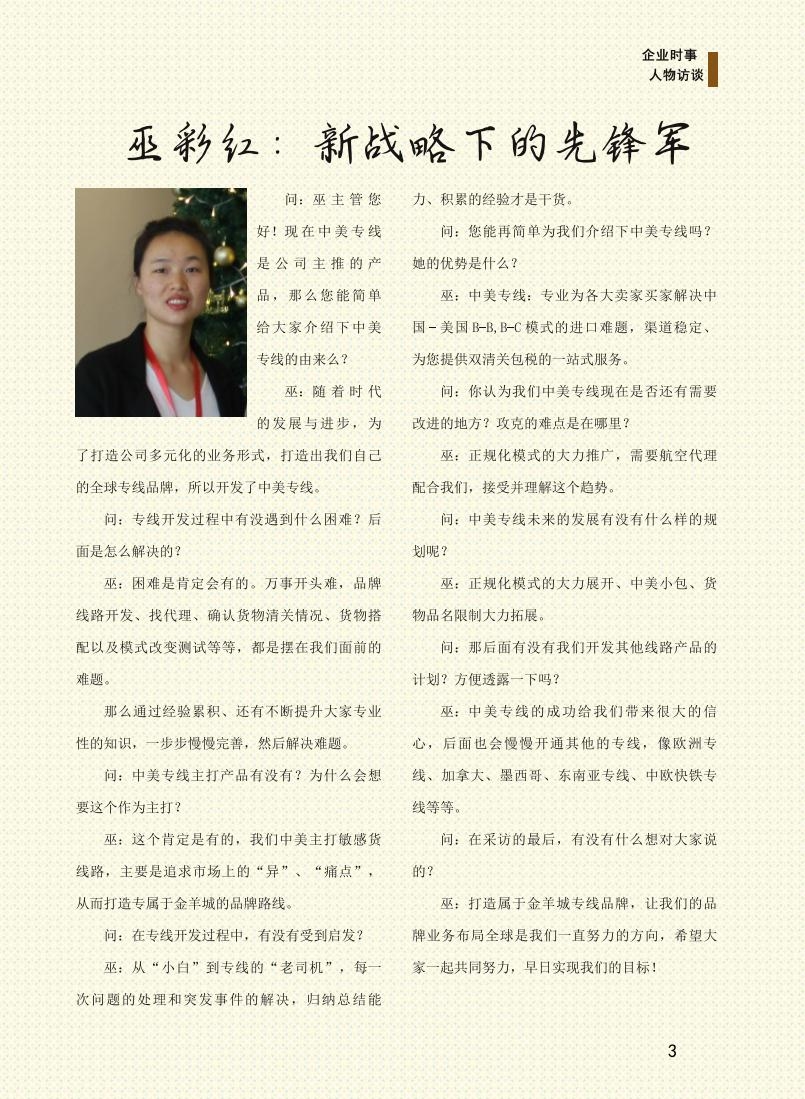 企业时事
人物访谈
巫彩红：新战略下的先锋军
问：巫主管您
好！现在中美专线
是公司主推的产
品，那么您能简单
给大家介绍下中美
专线的由来么？
巫：随着时代
的发展与进步，为
了打造公司多元化的业务形式，打造出我们自己
的全球专线品牌，所以开发了中美专线。
问：专线开发过程中有没遇到什么困难？后
面是怎么解决的？
巫：困难是肯定会有的。万事开头难，品牌
线路开发、找代理、确认货物清关情况、货物搭
配以及模式改变测试等等，都是摆在我们面前的
难题。
那么通过经验累积、还有不断提升大家专业
性的知识，一步步慢慢完善，然后解决难题。
问：中美专线主打产品有没有？为什么会想
要这个作为主打？
巫：这个肯定是有的，我们中美主打敏感货
线路，主要是追求市场上的“异”、“痛点”，
从而打造专属于金羊城的品牌路线。
问：在专线开发过程中，有没有受到启发？
巫：从“小白”到专线的“老司机”，每一
次问题的处理和突发事件的解决，归纳总结能
力、积累的经验才是干货。
问：您能再简单为我们介绍下中美专线吗？
她的优势是什么？
巫：中美专线：专业为各大卖家买家解决中
国-美国B-B,B-C模式的进口难题，渠道稳定、
为您提供双清关包税的一站式服务。
问：你认为我们中美专线现在是否还有需要
改进的地方？攻克的难点是在哪里？
巫：正规化模式的大力推广，需要航空代理
配合我们，接受并理解这个趋势。
问：中美专线未来的发展有没有什么样的规
划呢？
巫：正规化模式的大力展开、中美小包、货
物品名限制大力拓展。
问：那后面有没有我们开发其他线路产品的
计划？方便透露一下吗？
巫：中美专线的成功给我们带来很大的信
心，后面也会慢慢开通其他的专线，像欧洲专
线、加拿大、墨西哥、东南亚专线、中欧快铁专
线等等。
问：在采访的最后，有没有什么想对大家说
的？
巫：打造属于金羊城专线品牌，让我们的品
牌业务布局全球是我们一直努力的方向，希望大
家一起共同努力，早日实现我们的目标！
3